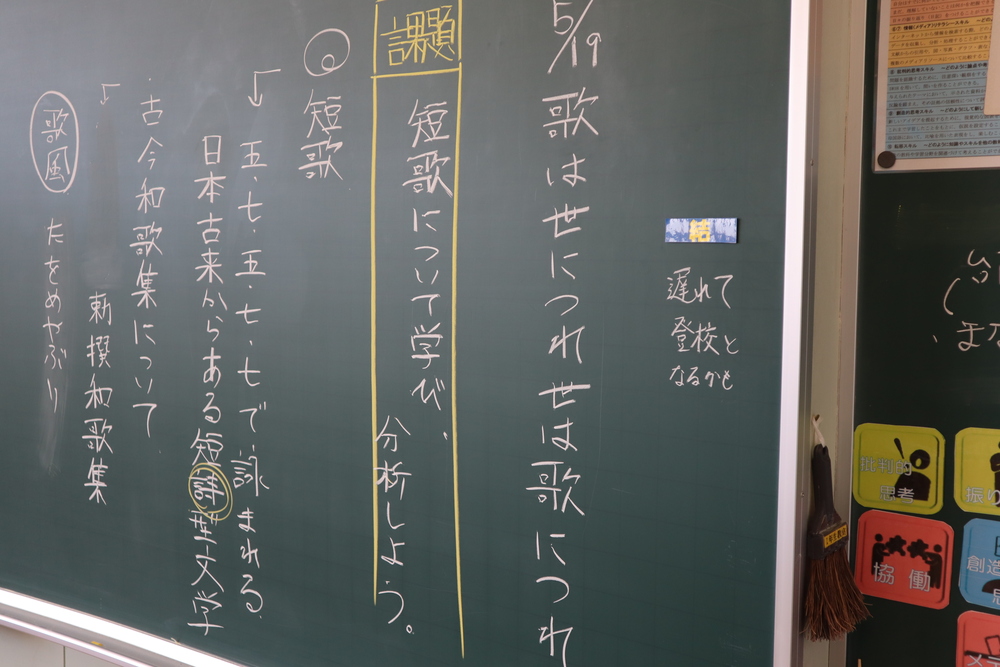 5/19 歌は世につれ世は歌につれ
結
遅れて
登校と
なるかも
課題
短歌について学び、
分析しよう。
短歌
五・七・五・七・七で詠まれる
日本古来からある短詩型文学
・古今和歌集について
新撰和歌集
歌風 たをめやぶり
批判的
思考
協働
創造